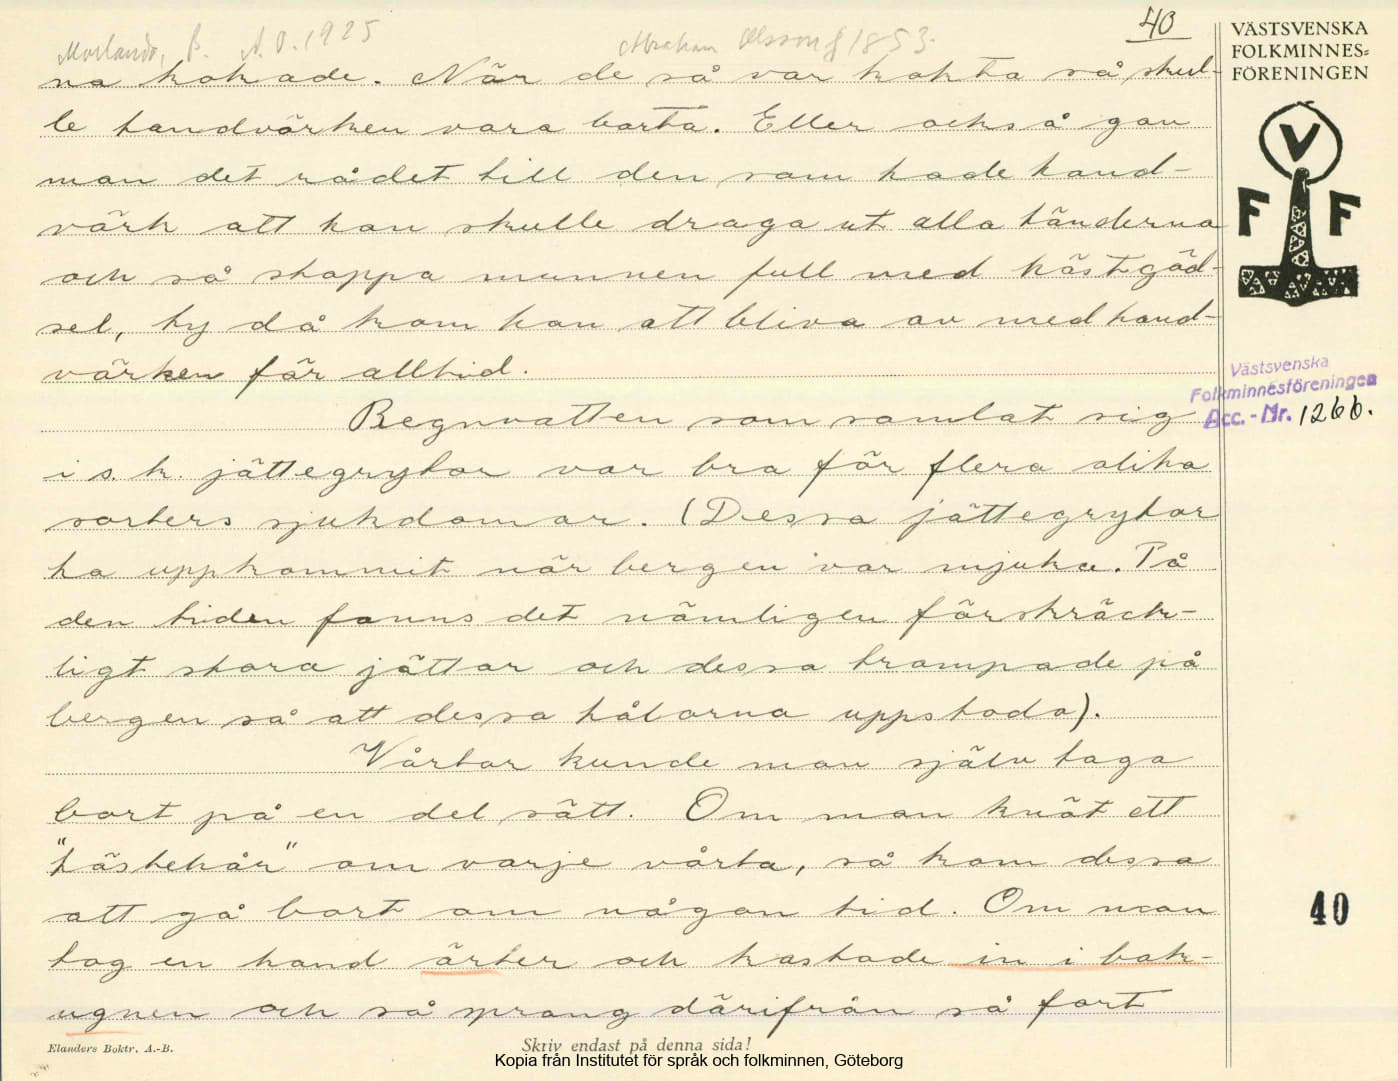 40
VÄSTSVENSKA
FOLKMINNES=
FÖRENINGEN
Morlanda, B. A.O. 1925 Abraham Olsson f 1853.
na kokade. När de så var kokta så skul-
le tandvärken vara borta. Eller också gav
man det rådet till den som hade tand-
värk att han skulle draga ut alla tänderna
och så stoppa munnen full med hästgöd-
sel, ty då kom han att bliva av med tand-
värken för alltid.
Regnvatten som samlat sig
i s. k. jättegrytor var bra för flera olika
sorters sjukdomar. (Dessa jättegrytor
ha uppkommit när bergen var mjuka. På
den tiden fanns det nämligen förskräck-
ligt stora jättar och dessa trampade på
bergen så att dessa hålorna uppstodo).
Vårtor kunde man själv taga
bort på en del sätt. Om man knöt ett
"hästehår" om varje vårta, så kom dessa
att gå bort om någon tid. Om man
tog en hand ärter och kastade in i bak-
ugnen och så sprang därifrån så fort
V
F F
Västsvenska
Folkminnesföreningen
Acc. - Nr. 1266.
40
Elanders Boktr. A.-B.
Skriv endast på denna sida!
Kopia från Institutet för språk och folkminnen, Göteborg